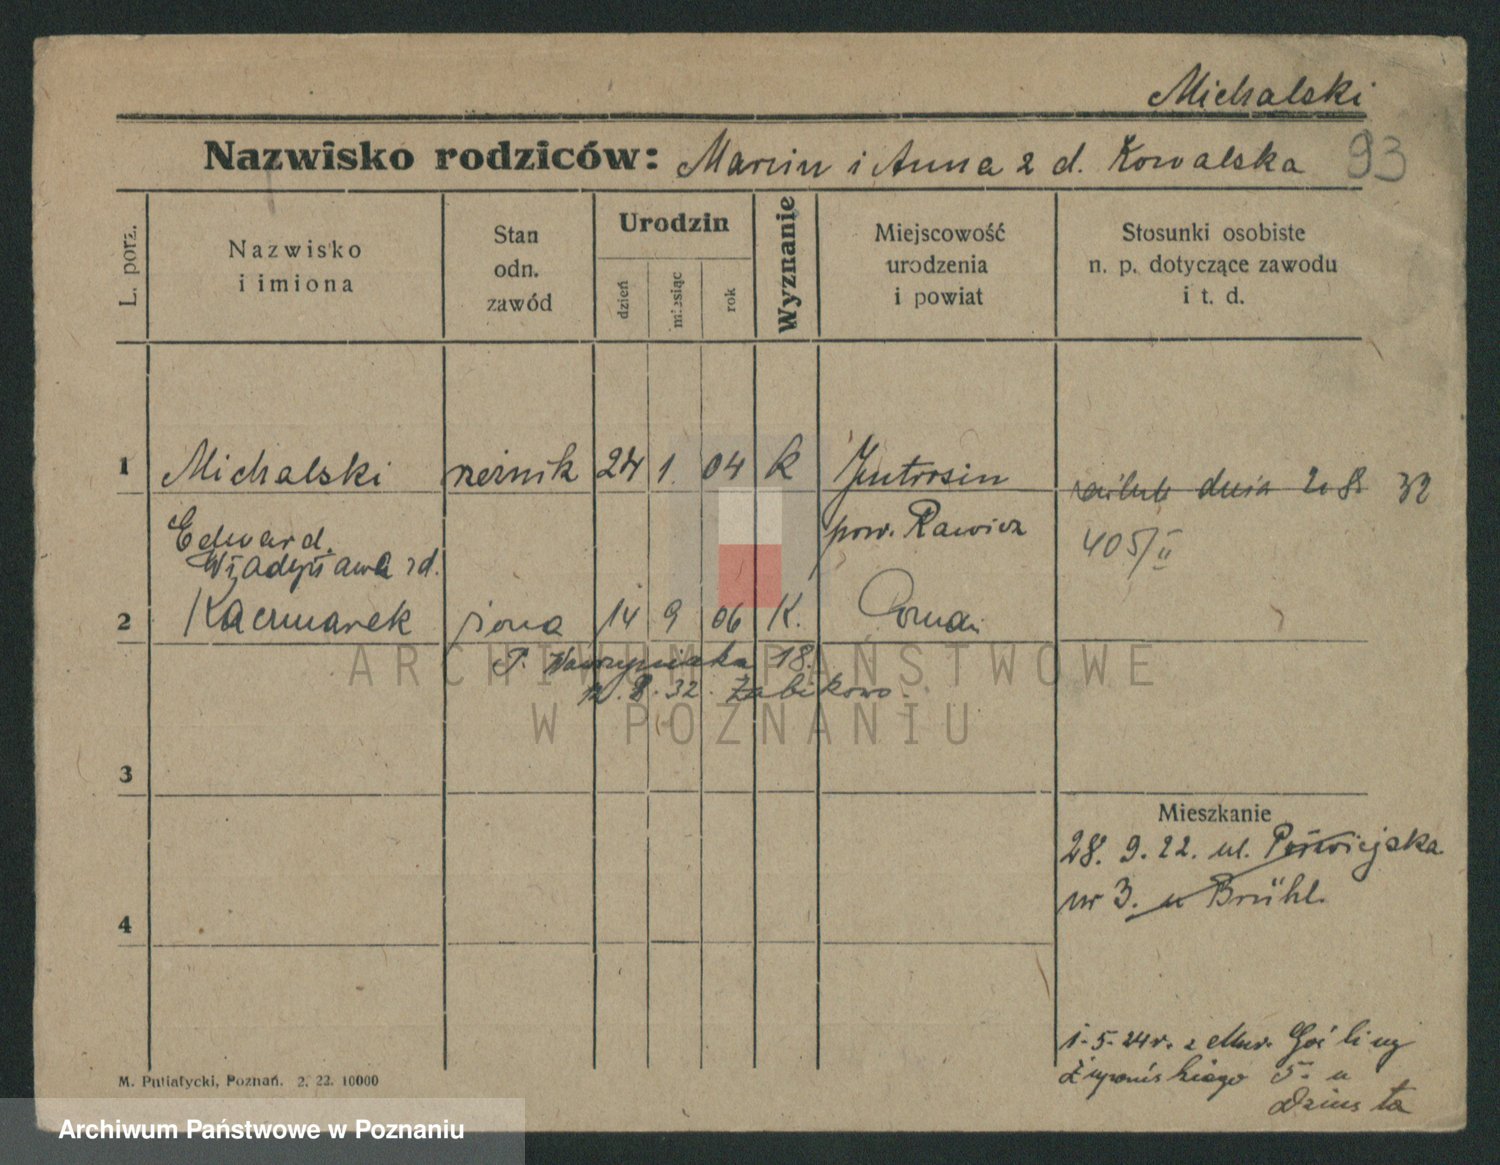 Michalski
Nazwisko rodziców: Marcin i Anna z d. Kowalska 93
L. porz.
Nazwisko
i imiona
Stan
odn.
zawód
Urodzin
dzień
miesiąc
rok
Wyznanie
Miejscowość
urodzenia
i powiat
Stosunki osobiste
n. p. dotyczące zawodu
i t. d.
1 Michalski rzeźnik 24 1. 04 k Jutrosin
ślub dnia 2. 8. 32
Edward pow. Rawicz
405/II
Władysława z d.
2 Kaczmarek żona 14 9 06 K.
P. Wawrzyniaka 18.
8. 32. Żabikowo
ARCHIWUM PAŃSTWOWE
W POZNANIU
3
Mieszkanie
28. 9. 22. ul. Półwiejska
nr 3. u Brühl.
4
1-5-24r. z Mur. Gośliny
Żupańskiego 5 u
M. Putiatycki, Poznań. 2. 22. 10000
Archiwum Państwowe w Poznaniu